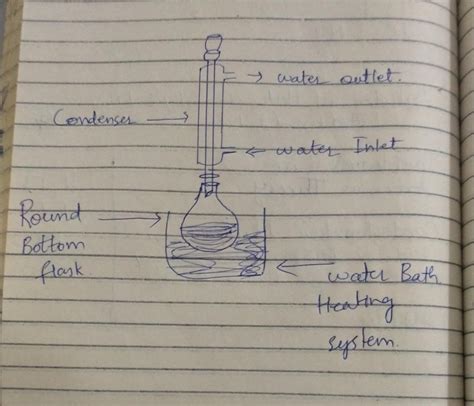 water outlet.
Condenser
water Inlet
Round
Bottom
flask
water Bath
Heating
system.